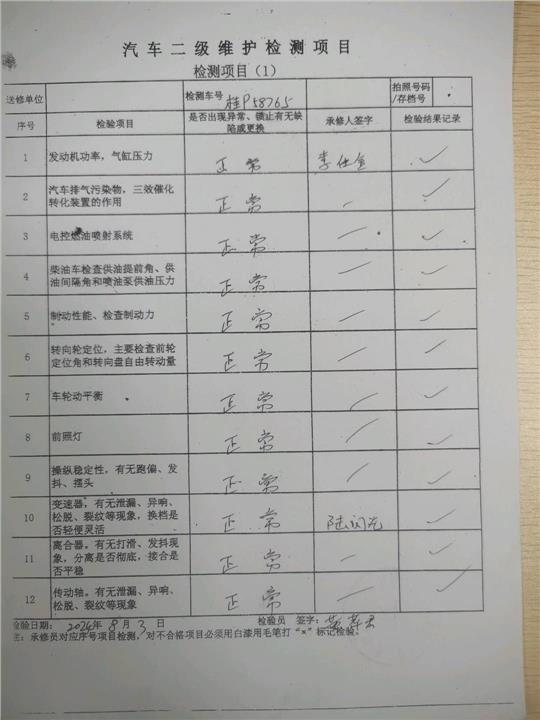 汽车二级维护检测项目
检测项目（1）
送修单位 检测车号 桂P58765 拍照号码/存档号
序号 检验项目 是否出现异常、锁止有无缺陷或更换 承修人签字 检验结果记录
1 发动机功率，气缸压力 正常 ✓
2 汽车排气污染物，三效催化转化装置的作用 正常 ✓
3 电控燃油喷射系统 正常 ✓
4 柴油车检查供油提前角、供油间隔角和喷油泵供油压力 正常 ✓
5 制动性能、检查制动力 正常 ✓
6 转向轮定位，主要检查前轮定位角和转向盘自由转动量 正常 ✓
7 车轮动平衡 正常 ✓
8 前照灯 正常 ✓
9 操纵稳定性，有无跑偏、发抖、摆头 正常 ✓
10 变速器，有无泄漏、异响、松脱、裂纹等现象，换档是否轻便灵活 正常 ✓
11 离合器。有无打滑、发抖现象，分离是否彻底，接合是否平稳 正常 ✓
12 传动轴。有无泄漏、异响、松脱、裂纹等现象 正常 ✓
检验日期： 2024年8月3日 检验员 签字：
注：承修员对应序号项目检测，对不合格项目必须用白漆用毛笔打“×”标记检验。